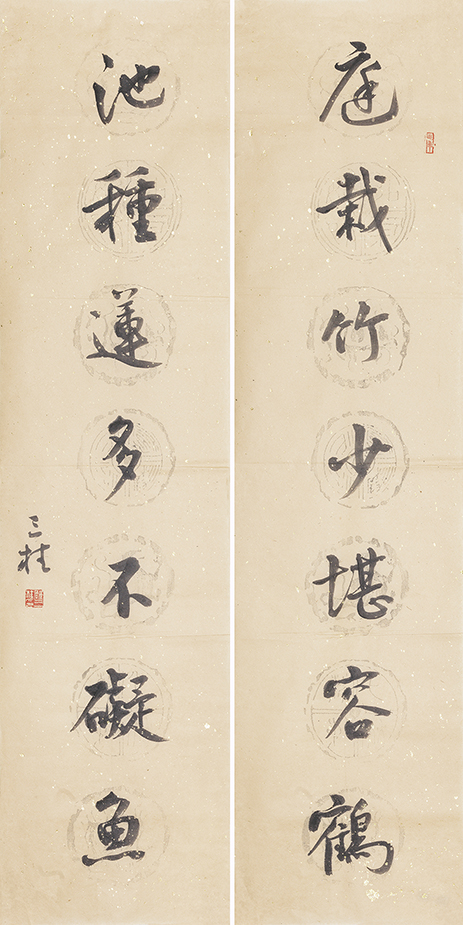 庭栽竹少堪容鶴
池種蓮多不礙魚
三桂